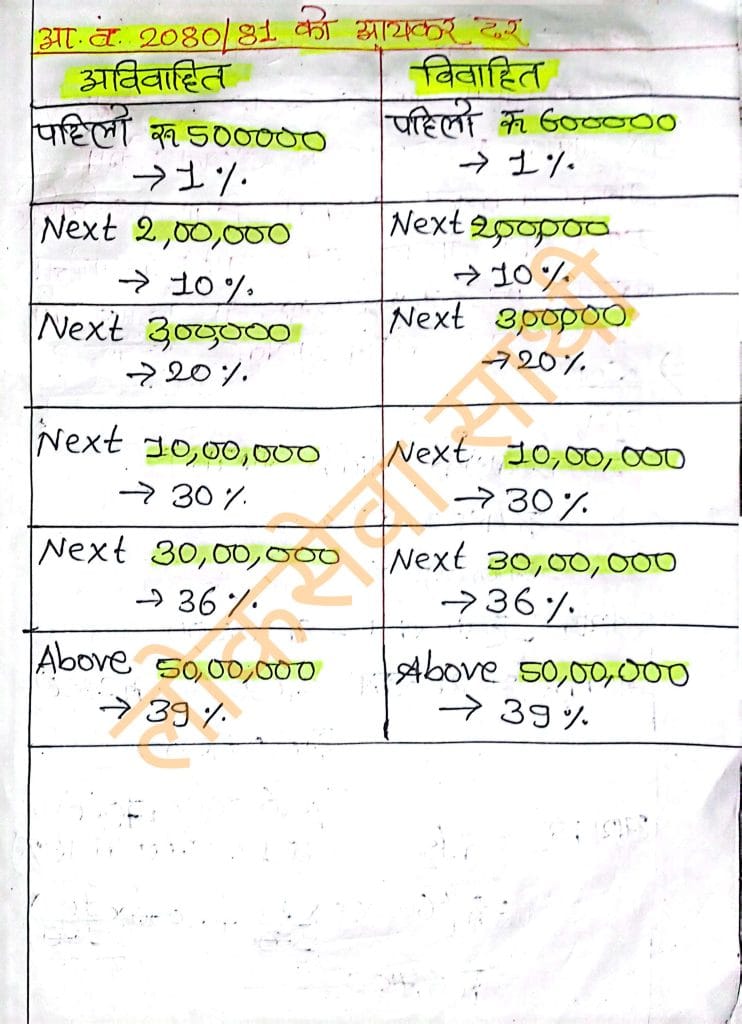 आ.व. 2080/81 को आयकर दर
अविवाहित
विवाहित
पहिलो रू 500000
→ 1 %
पहिलो रू 600000
→ 1 %
Next 2,00,000
→ 10 %
Next 2,00,000
→ 10 %
Next 3,00,000
→ 20 %
Next 3,00,000
→ 20 %
Next 10,00,000
→ 30 %
Next 10,00,000
→ 30 %
Next 30,00,000
→ 36 %
Next 30,00,000
→ 36 %
Above 50,00,000
→ 39 %
Above 50,00,000
→ 39 %
लोकसेवा साथी